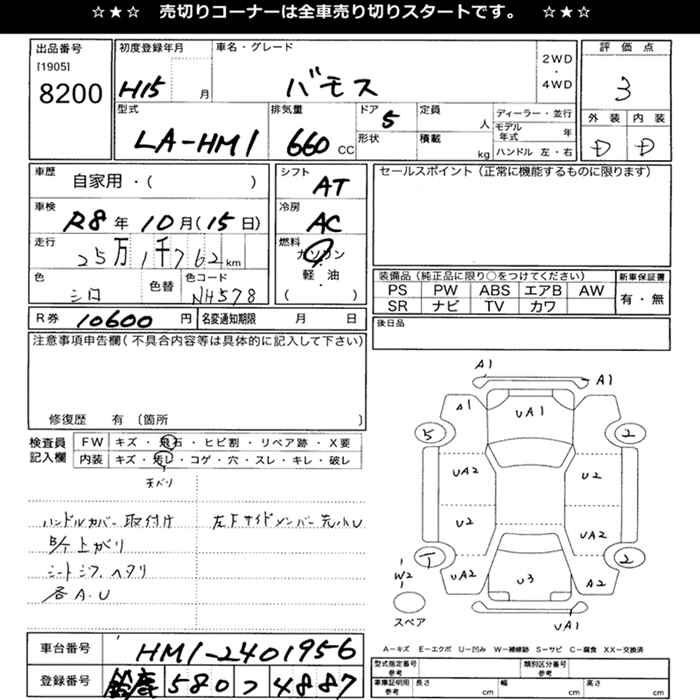 ☆★☆ 売切りコーナーは全車売り切りスタートです。 ☆★☆
出品番号
[1905]
8200
初度登録年月
H15 月
車名・グレード
バモス
2WD
・
4WD
評価点
3
型式
LA-HM1
排気量
660 CC
ドア 5
形状
定員 人
積載 kg
ディーラー・並行
モデル年式 年
ハンドル 左・右
外装 内装
D D
車歴 自家用・( )
シフト AT
セールスポイント(正常に機能するものに限ります)
車検 R8年 10月(15日)
冷房 AC
走行 25万1千762km
燃料
ガソリン
・
軽油
・
( )
色 シロ
色替
色コード NH578
装備品(純正品に限り○をつけてください)
新車保証書
PS PW ABS エアB AW
SR ナビ TV カワ
有・無
R券 10600円
名変通知期限 月 日
後日品
注意事項申告欄(不具合内容等は具体的に記入して下さい)
修復歴 有〔箇所 〕
検査員記入欄
FW キズ・飛石・ヒビ割・リペア跡・X要
内装 キズ・汚レ・コゲ・穴・スレ・キレ・破レ
天バリ
ハンドルカバー取付け
左下サイドメンバー先小U
B/T上がり
シートシミ、ヘタリ
各A.U
A1
A1
A1
UA1
5
2
UA2
U2
U2
UA2
1
2
UA2
A2
U3
W2
スペア
UA1
A－キズ E－エクボ U－凹み W－補修跡 S－サビ C－腐食 XX－交換済
車台番号 HM1-2401956
登録番号 鈴鹿 580 つ 4887
型式指定番号
参考
類別区分番号
参考
車庫証明用
参考
長さ cm
幅 cm
高さ cm